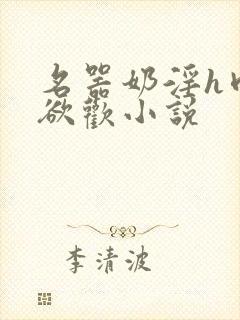 名器奶淫h
欲歡小說
李清波